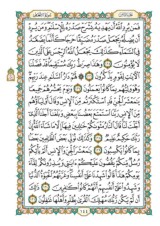 فَمَن يُرِدِ ٱللَّهُ أَن يَهْدِيَهُۥ يَشْرَحْ صَدْرَهُۥ لِلْإِسْلَٰمِ وَمَن يُرِدْ
أَن يُضِلَّهُۥ يَجْعَلْ صَدْرَهُۥ ضَيِّقًا حَرَجًا كَأَنَّمَا يَصَّعَّدُ
فِى ٱلسَّمَآءِ كَذَٰلِكَ يَجْعَلُ ٱللَّهُ ٱلرِّجْسَ عَلَى ٱلَّذِينَ
لَا يُؤْمِنُونَ وَهَٰذَا صِرَٰطُ رَبِّكَ مُسْتَقِيمًا قَدْ فَصَّلْنَا
ٱلْءَايَٰتِ لِقَوْمٍ يَذَّكَّرُونَ لَهُمْ دَارُ ٱلسَّلَٰمِ عِندَ رَبِّهِمْ
وَهُوَ وَلِيُّهُم بِمَا كَانُوا۟ يَعْمَلُونَ وَيَوْمَ يَحْشُرُهُمْ جَمِيعًا
يَٰمَعْشَرَ ٱلْجِنِّ قَدِ ٱسْتَكْثَرْتُم مِّنَ ٱلْإِنسِ وَقَالَ أَوْلِيَآؤُهُم
مِّنَ ٱلْإِنسِ رَبَّنَا ٱسْتَمْتَعَ بَعْضُنَا بِبَعْضٍ وَبَلَغْنَآ أَجَلَنَا ٱلَّذِىٓ
أَجَّلْتَ لَنَا قَالَ ٱلنَّارُ مَثْوَىٰكُمْ خَٰلِدِينَ فِيهَآ إِلَّا مَا شَآءَ ٱللَّهُ
إِنَّ رَبَّكَ حَكِيمٌ عَلِيمٌ وَكَذَٰلِكَ نُوَلِّى بَعْضَ ٱلظَّٰلِمِينَ بَعْضًۢا
بِمَا كَانُوا۟ يَكْسِبُونَ يَٰمَعْشَرَ ٱلْجِنِّ وَٱلْإِنسِ أَلَمْ يَأْتِكُمْ
رُسُلٌ مِّنكُمْ يَقُصُّونَ عَلَيْكُمْ ءَايَٰتِى وَيُنذِرُونَكُمْ لِقَآءَ
يَوْمِكُمْ هَٰذَا قَالُوا۟ شَهِدْنَا عَلَىٰٓ أَنفُسِنَا وَغَرَّتْهُمُ ٱلْحَيَوٰةُ ٱلدُّنْيَا
وَشَهِدُوا۟ عَلَىٰٓ أَنفُسِهِمْ أَنَّهُمْ كَانُوا۟ كَٰفِرِينَ ذَٰلِكَ
أَن لَّمْ يَكُن رَّبُّكَ مُهْلِكَ ٱلْقُرَىٰ بِظُلْمٍ وَأَهْلُهَا غَٰفِلُونَ
١٤٤